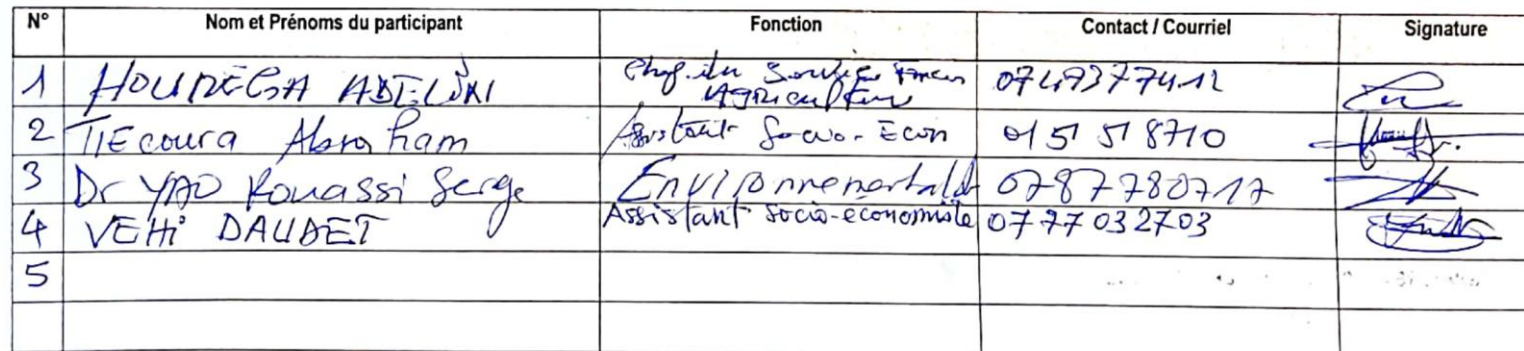 N° Nom et Prénoms du participant Fonction Contact / Courriel Signature
1 HOUNDEGA Chef du Service
Agriculture
2 TIEcoura Abraham Assistant Socio-Econ 01 51 51 8710
3 Dr YAO Kouassi Serge Environnementaliste 0787780717
4 VEHi DAUDET Assistant socio-économiste 0777032703
5